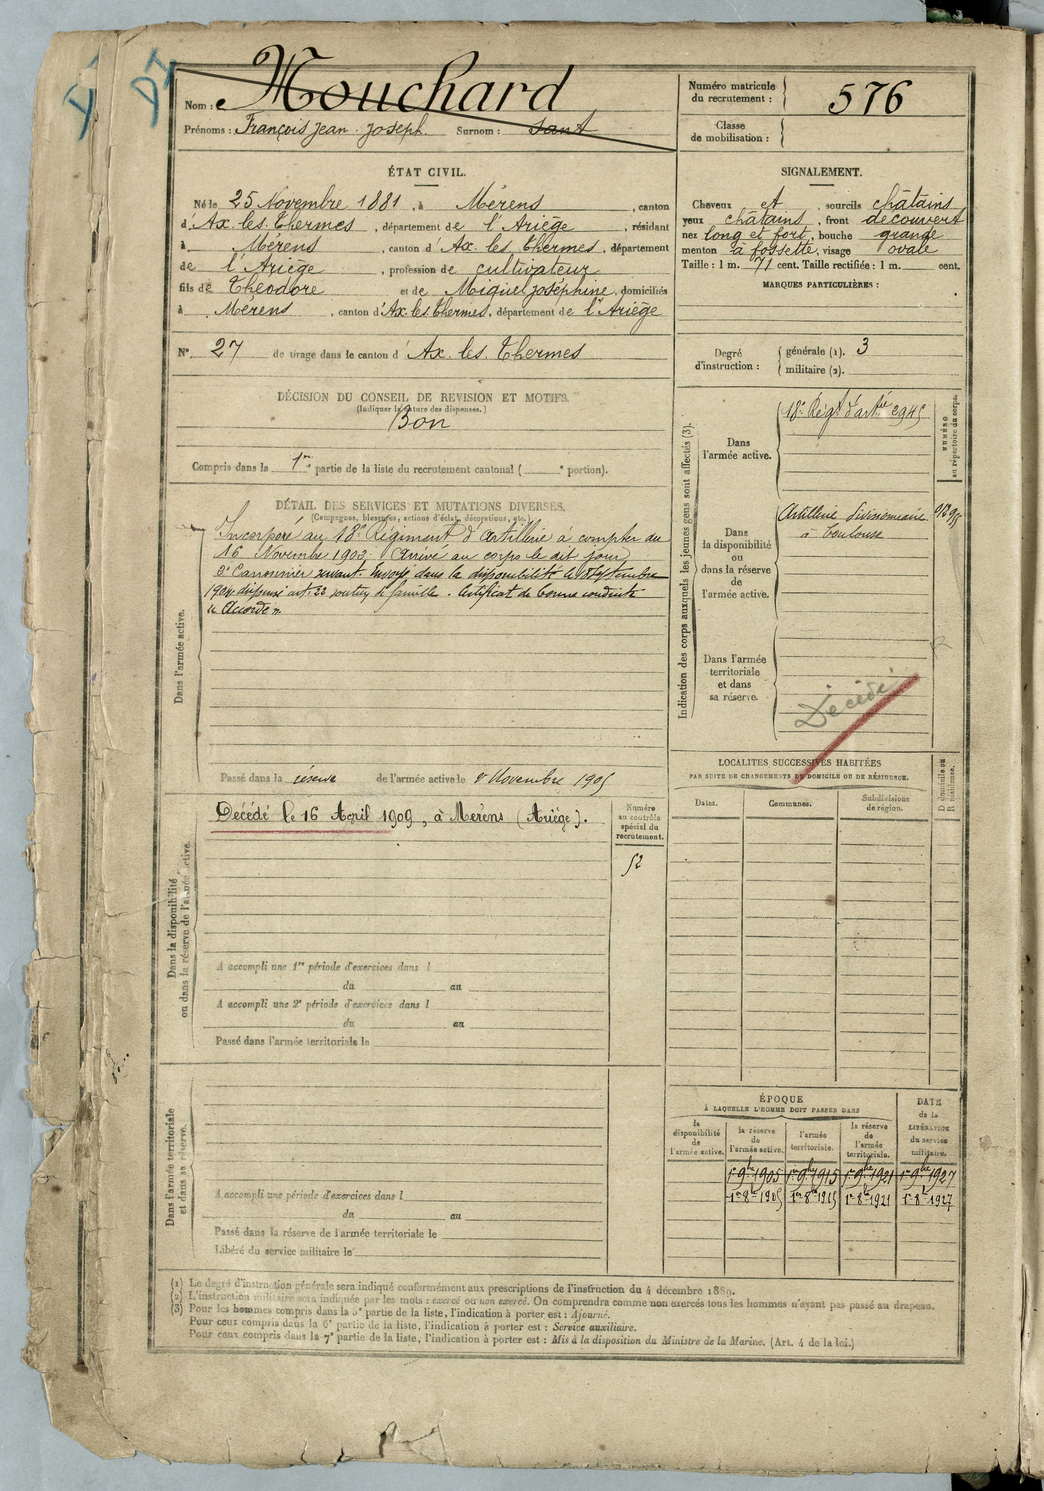 Nom : Mouchard
Prénoms : François Jean Joseph. Surnom : Sant
Numéro matricule du recrutement : 576
Classe de mobilisation :
ÉTAT CIVIL.
Né le 25 Novembre 1881, à Mérens, canton
d'Ax les Thermes, département de l'Ariège, résidant
à Mérens, canton d'Ax les Thermes, département
de l'Ariège, profession de cultivateur
fils de Théodore et de Miquel Joséphine, domiciliés
à Mérens, canton d'Ax les Thermes, département de l'Ariège
N° 27 de tirage dans le canton d'Ax les Thermes
SIGNALEMENT.
Cheveux et, sourcils châtains
yeux châtains, front découvert
nez long et fort, bouche grande
menton à fossette, visage ovale
Taille : 1 m. 71 cent. Taille rectifiée : 1 m. cent.
MARQUES PARTICULIÈRES :
Degré d'instruction :
générale (1). 3
militaire (2).
DÉCISION DU CONSEIL DE REVISION ET MOTIFS.
(Indiquer la nature des dispenses.)
Bon
Compris dans la 1re partie de la liste du recrutement cantonal ( e portion).
DÉTAIL DES SERVICES ET MUTATIONS DIVERSES.
(Campagnes, blessures, actions d'éclat, décorations, etc.)
Dans l'armée active.
Incorporé au 18e Régiment d'Artillerie à compter du
16 Novembre 1903. Arrivé au corps le dit jour
2e Canonnier servant. Envoyé dans la disponibilité le Septembre
1904 dispensé art. 22 soutien de famille. Certificat de bonne conduite
"Accordé".
Passé dans la réserve de l'armée active le 1er Novembre 1905
Indication des corps auxquels les jeunes gens sont affectés (3).
Dans l'armée active.
18e Régt d'artie
NUMÉRO au répertoire du corps.
Dans la disponibilité ou dans la réserve de l'armée active.
Artillerie divisionnaire
à Toulouse
Dans l'armée territoriale et dans sa réserve.
Décédé
LOCALITÉS SUCCESSIVES HABITÉES
PAR SUITE DE CHANGEMENTS DE DOMICILE OU DE RÉSIDENCE.
Dates.
Communes.
Subdivisions de région.
D domicile ou R résidence.
Dans la disponibilité ou dans la réserve de l'armée active.
Décédé le 16 Avril 1909, à Mérens (Ariège).
Numéro au contrôle spécial du recrutement.
52
A accompli une 1re période d'exercices dans l
du au
A accompli une 2e période d'exercices dans l
du au
Passé dans l'armée territoriale le
Dans l'armée territoriale et dans sa réserve.
A accompli une période d'exercices dans l
du au
Passé dans la réserve de l'armée territoriale le
Libéré du service militaire le
ÉPOQUE
À LAQUELLE L'HOMME DOIT PASSER DANS
la disponibilité de l'armée active.
la réserve de l'armée active.
l'armée territoriale.
la réserve de l'armée territoriale.
DATE de la LIBÉRATION du service militaire.
1er 9bre 1905 1er 9bre 1915 1er 9bre 1921 1er 9bre 1927
1er 8bre 1905 1er 8bre 1915 1er 8bre 1921 1er 8bre 1927
(1) Le degré d'instruction générale sera indiqué conformément aux prescriptions de l'instruction du 4 décembre 1889.
(2) L'instruction militaire sera indiquée par les mots : exercé ou non exercé. On comprendra comme non exercés tous les hommes n'ayant pas passé au drapeau.
(3) Pour les hommes compris dans la 5e partie de la liste, l'indication à porter est : Ajourné.
Pour ceux compris dans la 6e partie de la liste, l'indication à porter est : Service auxiliaire.
Pour ceux compris dans la 7e partie de la liste, l'indication à porter est : Mis à la disposition du Ministre de la Marine. (Art. 4 de la loi.)